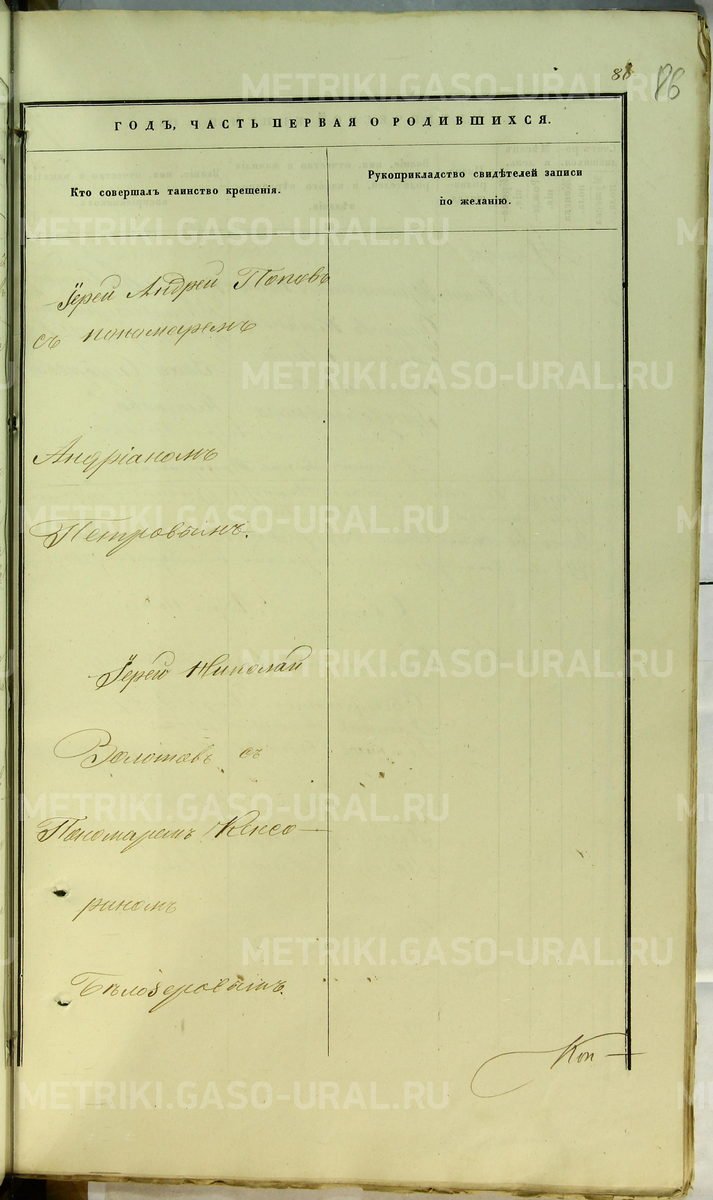 88
86
ГОДЪ, ЧАСТЬ ПЕРВАЯ О РОДИВШИХСЯ.
Кто совершалъ таинство крещенія.
Рукоприкладство свидѣтелей записи
по желанію.
Іерей Андрей Поповъ
съ пономаремъ
Андріаномъ
Петровымъ.
Іерей Николай
Золотовъ съ
Пономаремъ Ксисо-
риномъ
Бѣлозеровымъ.
Коп
METRIKI.GASO-URAL.RU